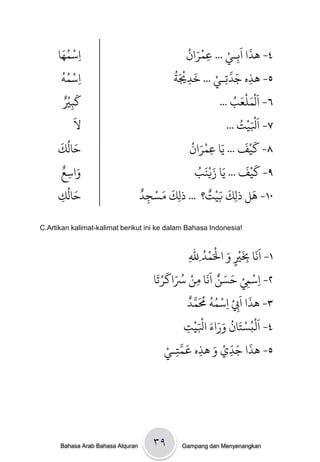 ٤- هذَا اَبِـيْ ... عِمْرَانُ	اِسْمُهَا
٥- هذِه جَدَّتِـيْ ... خَدِيْجَةُ	اِسْمُهُ
٦- اَلْمَلْعَبُ ...	كَبِيْرٌ
٧- اَلْبَيْتُ ...	لَا
٨- كَيْفَ ... يَا عِمْرَانُ	حَالُكَ
٩- كَيْفَ ... يَا زَيْنَبُ	وَاسِعٌ
١٠- هَل ذلِكَ بَيْتٌ؟ ... ذلِكَ مَسْجِدٌ	حَالُكِ
C.Artikan kalimat-kalimat berikut ini ke dalam Bahasa Indonesia!
١- اَنَا بِخَيْرٍ وَ الْحَمْدُ لِلهِ
٢- اِسْمِيْ حَسَنٌ اَنَا مِنْ سُرَاكَرْتَا
٣- هذَا اَبِيْ اِسْمُهُ مُحَمَّدٌ
٤- اَلْبُسْتَانُ وَرَاءَ الْبَيْتِ
٥- هذَا جَدِّيْ وَ هذِه عَمَّتِـيْ
Bahasa Arab Bahasa Alquran ٣٩ Gampang dan Menyenangkan